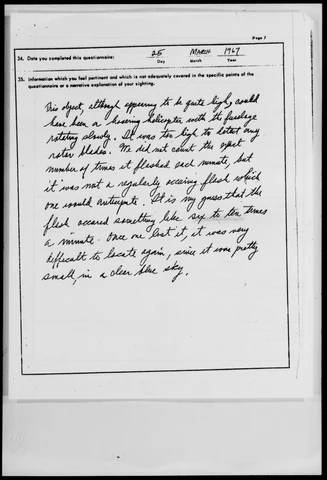 Page 7
34. Date you completed this questionnaire: 25 MARCH 1967
Day Month Year
35. Information which you feel pertinent and which is not adequately covered in the specific points of the
questionnaire or a narrative explanation of your sighting.
This object, although appearing to be quite high, could
have been a hovering helicopter with the fuselage
rotating slowly. It was too high to detect any
rotor blades. We did not count the exact
number of times it flashed each minute, but
it was not a regularly occuring flash which
one would anticipate. It is my guess that the
flash occured something like six to ten times
a minute. Once one lost it, it was very
difficult to locate again, since it was pretty
small, in a clear blue sky.